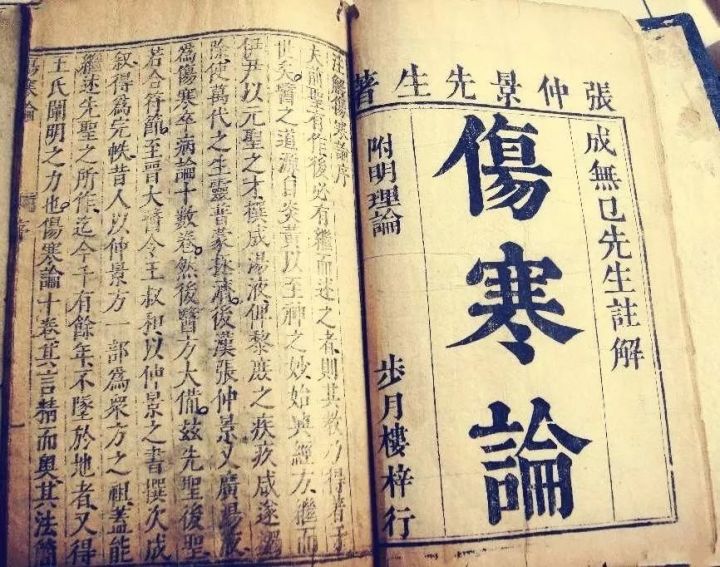 張仲景先生著
成無已先生註解
傷寒論
附明理論
步月樓梓行
注解傷寒論序
夫前聖有作後必有繼而述之者則其教乃得著于
世矣。醫之道源自炎黃以至神之妙始興經方。繼而
伊尹以元聖之才撰成湯液俾黎庶之疾疚咸遂蠲
除使萬代之生靈普蒙拯濟後漢張仲景又廣湯液
為傷寒卒病論十數卷。然後醫方大備。茲先聖後聖
若合符節。至晉大醫令王叔和以仲景之書撰次成
敘得為完帙昔人以仲景方一部為眾方之祖蓋能
繼述先聖之所作。迄今千有餘年。不墜於地者。又得
王氏闡明之力也。傷寒論十卷其言精而奧其法簡
傷寒論